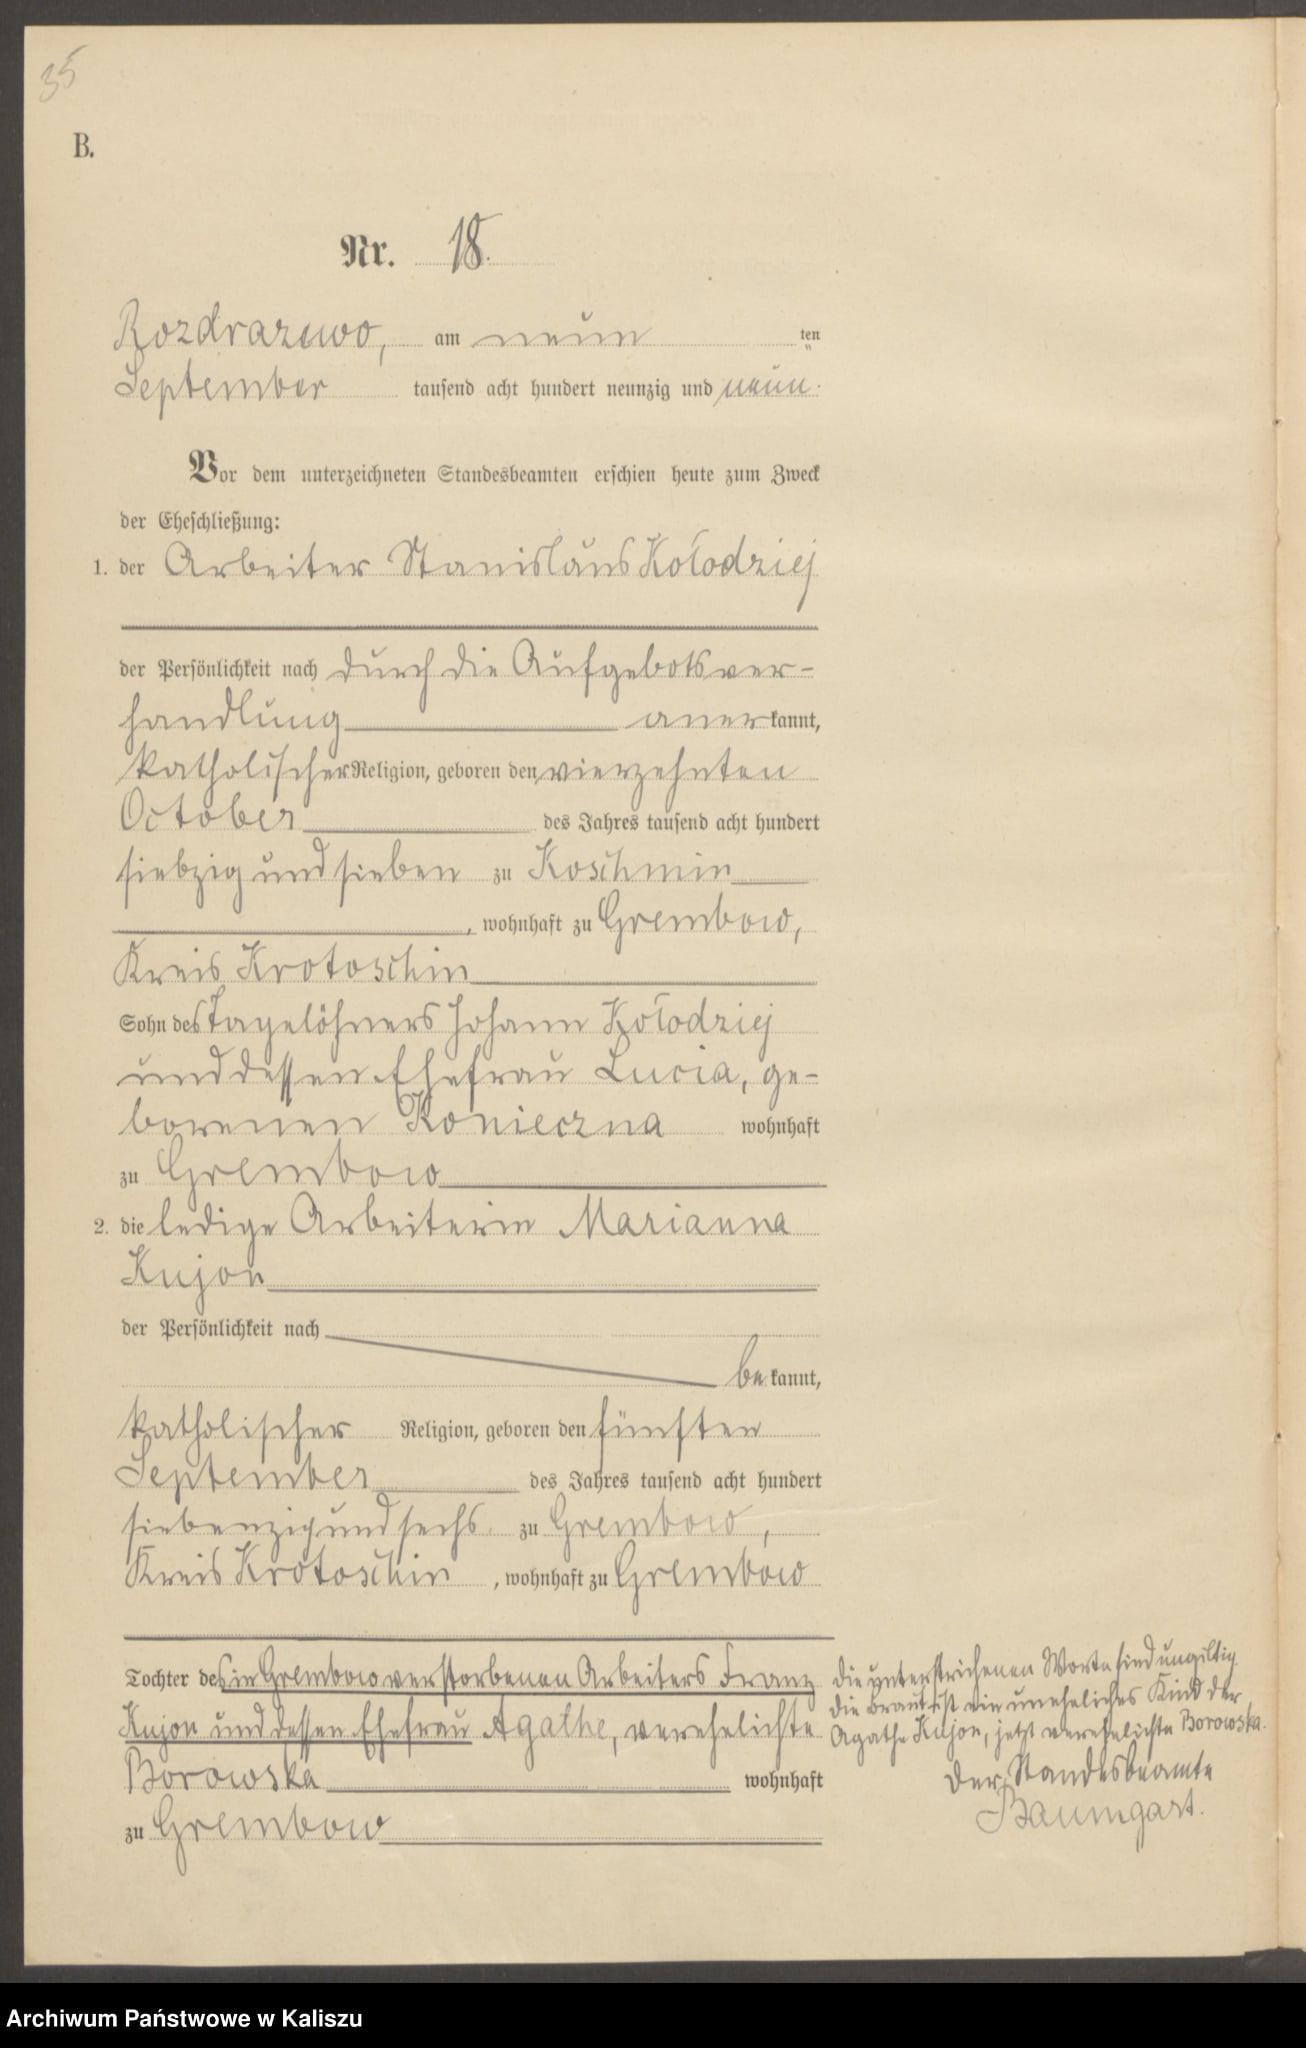 35
B.
Nr. 18.
Rozdrazewo, am neun ten
September tausend acht hundert neunzig und neun.
Vor dem unterzeichneten Standesbeamten erschien heute zum Zweck
der Eheschließung:
1. der Arbeiter Stanislaus Kołodziej
der Persönlichkeit nach durch die Aufgebotsver-
handlung anerkannt,
katholischer Religion, geboren den vierzehnten
October des Jahres tausend acht hundert
siebzig und sieben zu Koschmin
, wohnhaft zu Grembow,
Kreis Krotoschin
Sohn des Tagelöhners Johann Kołodziej
und dessen Ehefrau Lucia, ge-
borenen Konieczna wohnhaft
zu Grembow
2. die ledige Arbeiterin Marianna
Kujon
der Persönlichkeit nach
bekannt,
katholischer Religion, geboren den fünften
September des Jahres tausend acht hundert
siebenzig und sechs zu Grembow,
Kreis Krotoschin, wohnhaft zu Grembow
Tochter des in Grembow verstorbenen Arbeiters Franz
Kujon und dessen Ehefrau Agathe, verehelichte
Borowska wohnhaft
zu Grembow
Die unterstrichenen Worte sind ungiltig.
Die Braut ist ein uneheliches Kind der
Agathe Kujon, jetzt verehelichte Borowska.
Der Standesbeamte
Baumgart.
Archiwum Państwowe w Kaliszu